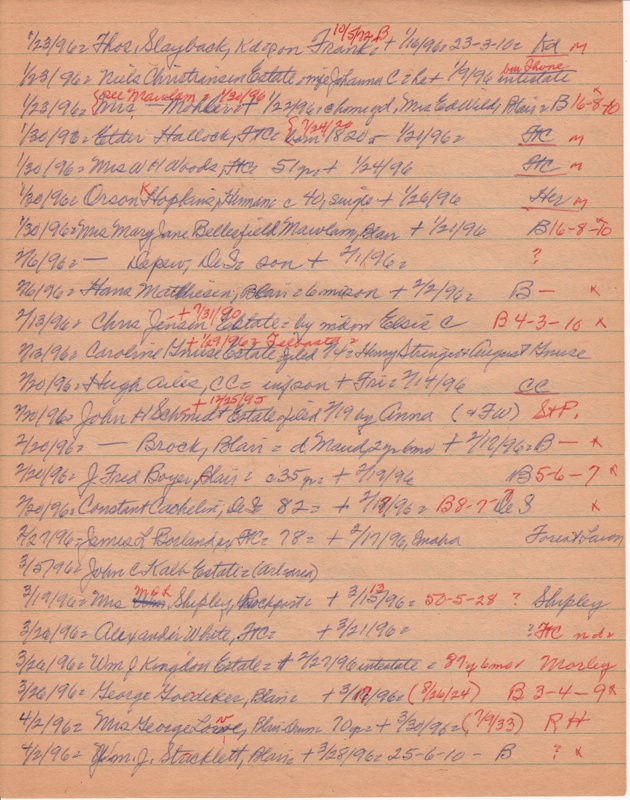 10/5/72=B
1/23/96= Thos. Slayback, Kdopon Frank= + 1/16/96= 23-3-10= Kd m
Tom Thone
1/23/96= Niels Christiansen Estate = wife Johanna C = he + 1/9/96 intestate
{see Mawlam = 1/30/96
1/23/96= Mrs — Mohler = + 1/22/96, c home gd, Mrs Ed Wild, Blair = B 16-8-10 x
{7/24/20
1/30/96= Elder Hallock, FtC= born 1820 = 1/21/96= FtC m
1/30/96= Mrs W H Woods, FtC= 51 yr= + 1/24/96 FtC m
1/30/96= Orson K Hopkins, Herman= c 40, single + 1/26/96 Her m
1/30/96= Mrs Mary Jane Bellesfield Mawlam, Blair + 1/21/96 B 16-8-10 x
2/6/96= — Depew, DeS= son + 2/1/96= ?
2/6/96= Hans Mathiesen, Blair = 6 mi son + 2/2/96= B — x
+ 7/31/90
2/13/96= Chris Jensen Estate = by widow Elsie C B 4-3-10 x
+ 1/29/96=
2/13/96= Caroline Gruse Estate filed 2/4= Henry Stringer + August Gruse
2/20/96= Hugh Ailes, CC= inf son + Fri= 2/14/96 CC
+ 12/25/95
2/20/96= John H Schmidt Estate filed 2/19 by Anna (& FW) S+P.
2/20/96= — Brock, Blair = d Maud, 2 yr 6 mo + 2/12/96= B — x
2/20/96= J. Fred Boyer, Blair = c 35 yr= + 2/19/96 B 5-6-7 x
2/20/96= Constant Cachelin, DeS= 82= + 2/18/96= B 8-7- DeS x
2/27/96= James L Borlander, FtC= 78= + 2/17/96, Omaha Forest Lawn
3/5/96= John C Kalb Estate= (Arlcaria)
13
3/19/96= Mrs Mch Shipley, Rockport= + 3/15/96= 50-5-28 ? Shipley
3/26/96= Alexander White, FtC= + 3/21/96= ? FtC n d=
3/26/96= Wm J Kingdon Estate= + 2/27/96 intestate = 87 y 6 mo r Morley
3/26/96= George Goedeker, Blair= + 3/17/96= (8/26/24) B 3-4-9 x
4/2/96= Mrs George Lowe, Blair-Omm= 70 yr= + 3/30/96= (7/9/33) R H
4/2/96= Wm. J. Stacklett, Blair= + 3/28/96= 25-6-10- B ? x